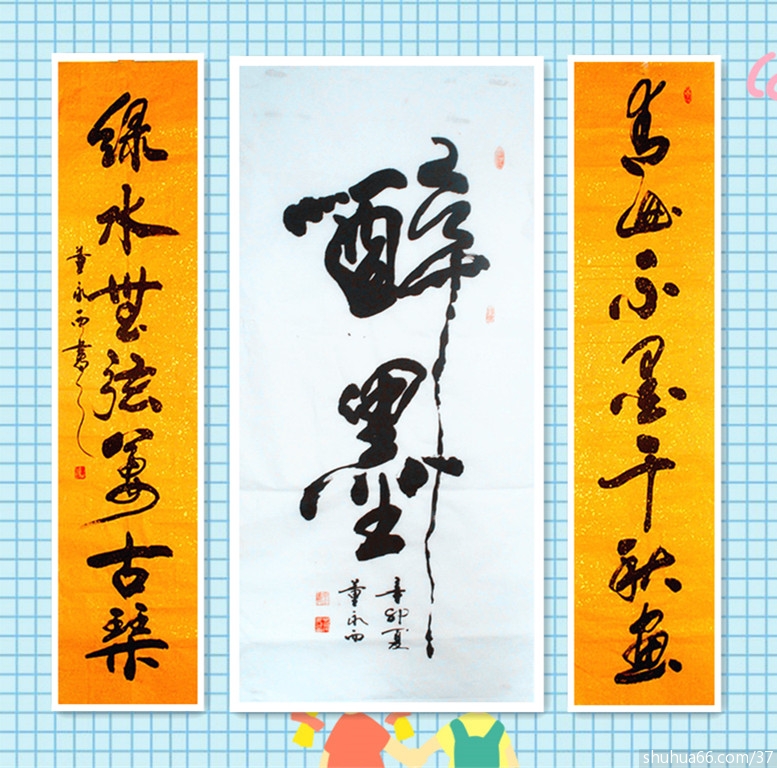 青山不墨千秋画
醉墨
辛卯夏
董永西
绿水無弦萬古琴
董永西書
shuhua66.com/37